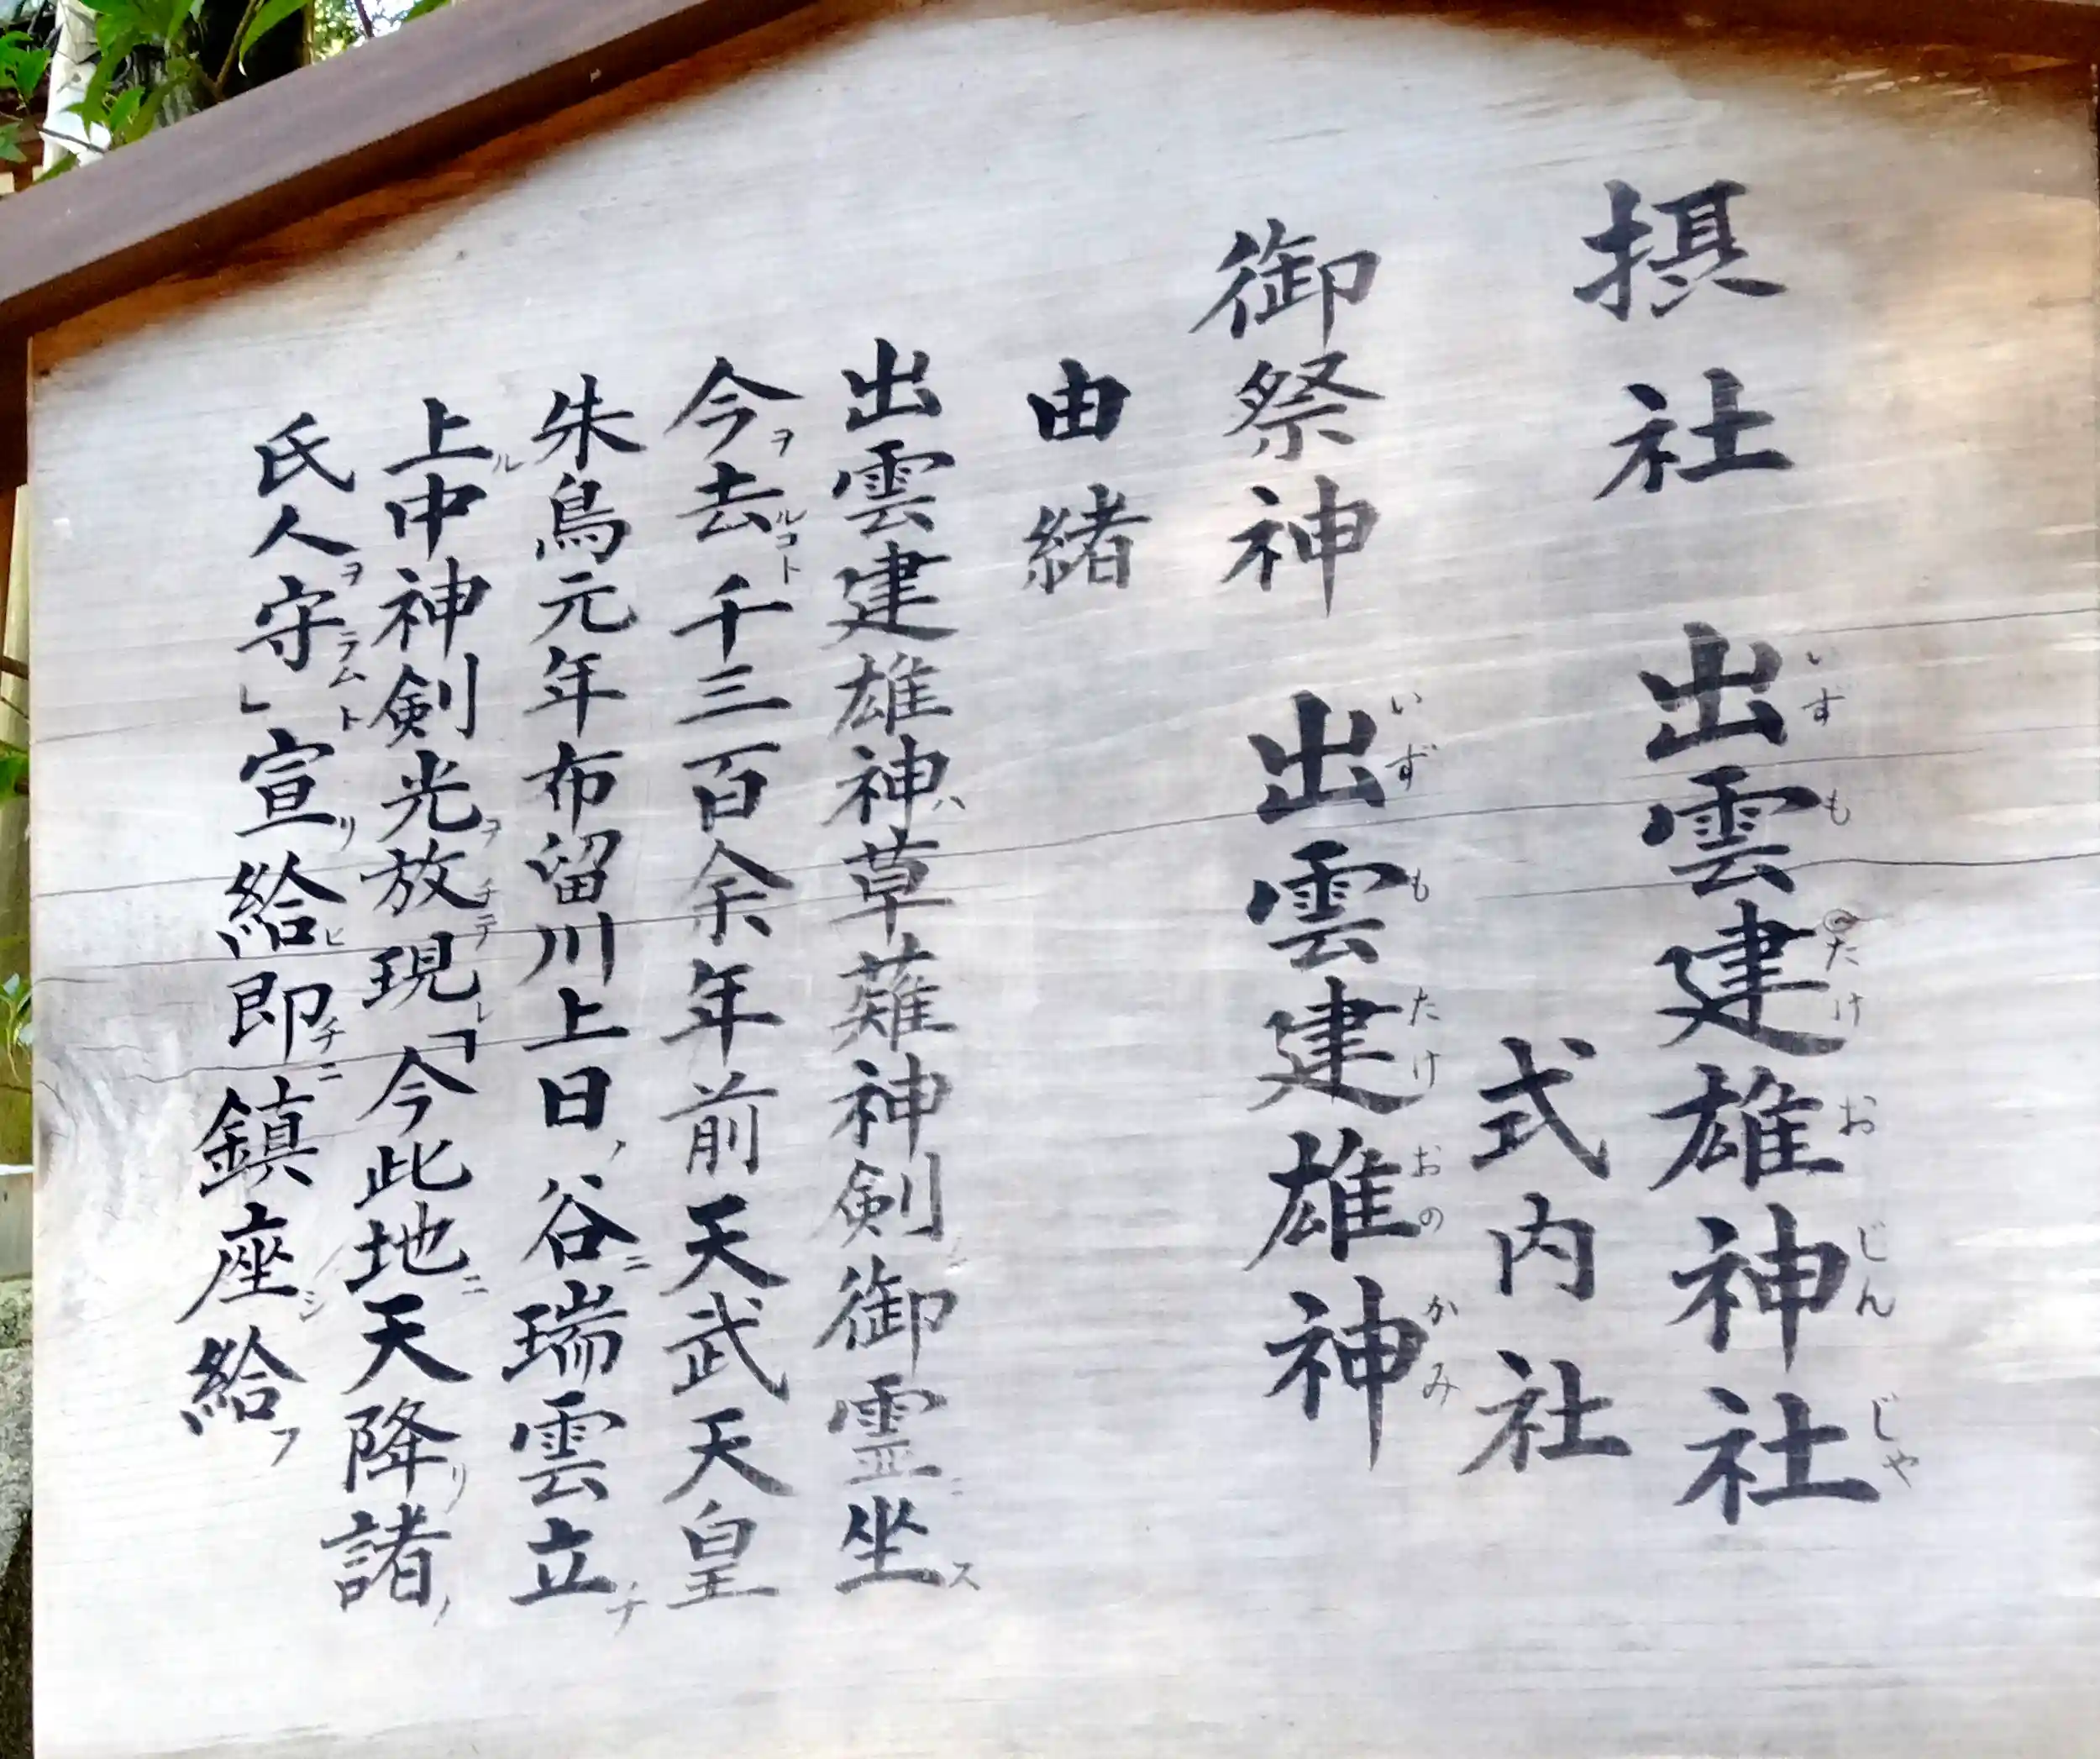 摂社　出雲建雄神社
いずもたけおじんじゃ
式内社
御祭神　出雲建雄神
いずもたけおのかみ
由緒
出雲建雄神ハ草薙神剣ノ御霊ニ坐ス
今ヲ去ルコト千三百余年前天武天皇
朱鳥元年布留川上日ノ谷ニ瑞雲立チ
上ル中神剣光ヲ放チテ現レ「今此地ニ天降リ諸ノ
氏人ヲ守ラムト」宣リ給ヒ即チニ鎮座シ給フ